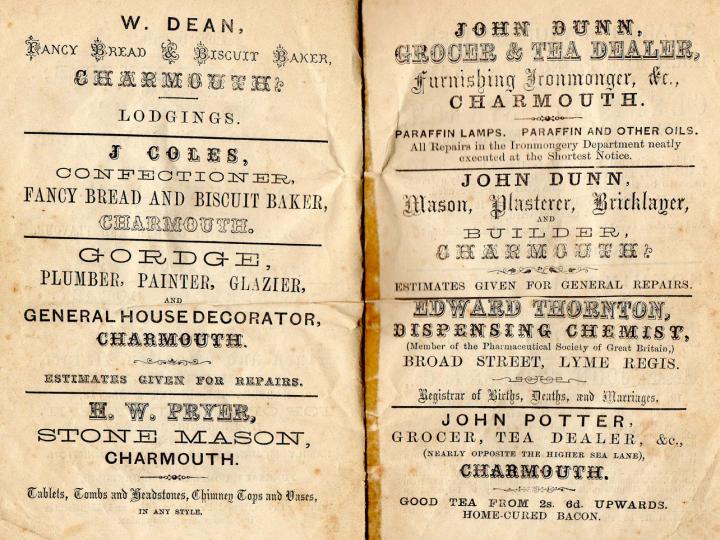 W. DEAN,
FANCY BREAD & BISCUIT BAKER,
CHARMOUTH.
LODGINGS.
J COLES,
CONFECTIONER,
FANCY BREAD AND BISCUIT BAKER,
CHARMOUTH.
GORDGE,
PLUMBER, PAINTER, GLAZIER,
AND
GENERAL HOUSE DECORATOR,
CHARMOUTH.
ESTIMATES GIVEN FOR REPAIRS.
H. W. PRYER,
STONE MASON,
CHARMOUTH.
Tablets, Tombs and Headstones, Chimney Tops and Vases,
IN ANY STYLE.
JOHN DUNN,
GROCER & TEA DEALER,
Furnishing Ironmonger, &c.,
CHARMOUTH.
PARAFFIN LAMPS. PARAFFIN AND OTHER OILS.
All Repairs in the Ironmongery Department neatly
executed at the Shortest Notice.
JOHN DUNN,
Mason, Plasterer, Bricklayer,
AND
BUILDER,
CHARMOUTH.
ESTIMATES GIVEN FOR GENERAL REPAIRS.
EDWARD THORNTON,
DISPENSING CHEMIST,
(Member of the Pharmaceutical Society of Great Britain,)
BROAD STREET, LYME REGIS.
Registrar of Births, Deaths, and Marriages.
JOHN POTTER,
GROCER, TEA DEALER, &c.,
(NEARLY OPPOSITE THE HIGHER SEA LANE),
CHARMOUTH.
GOOD TEA FROM 2s. 6d. UPWARDS.
HOME-CURED BACON.